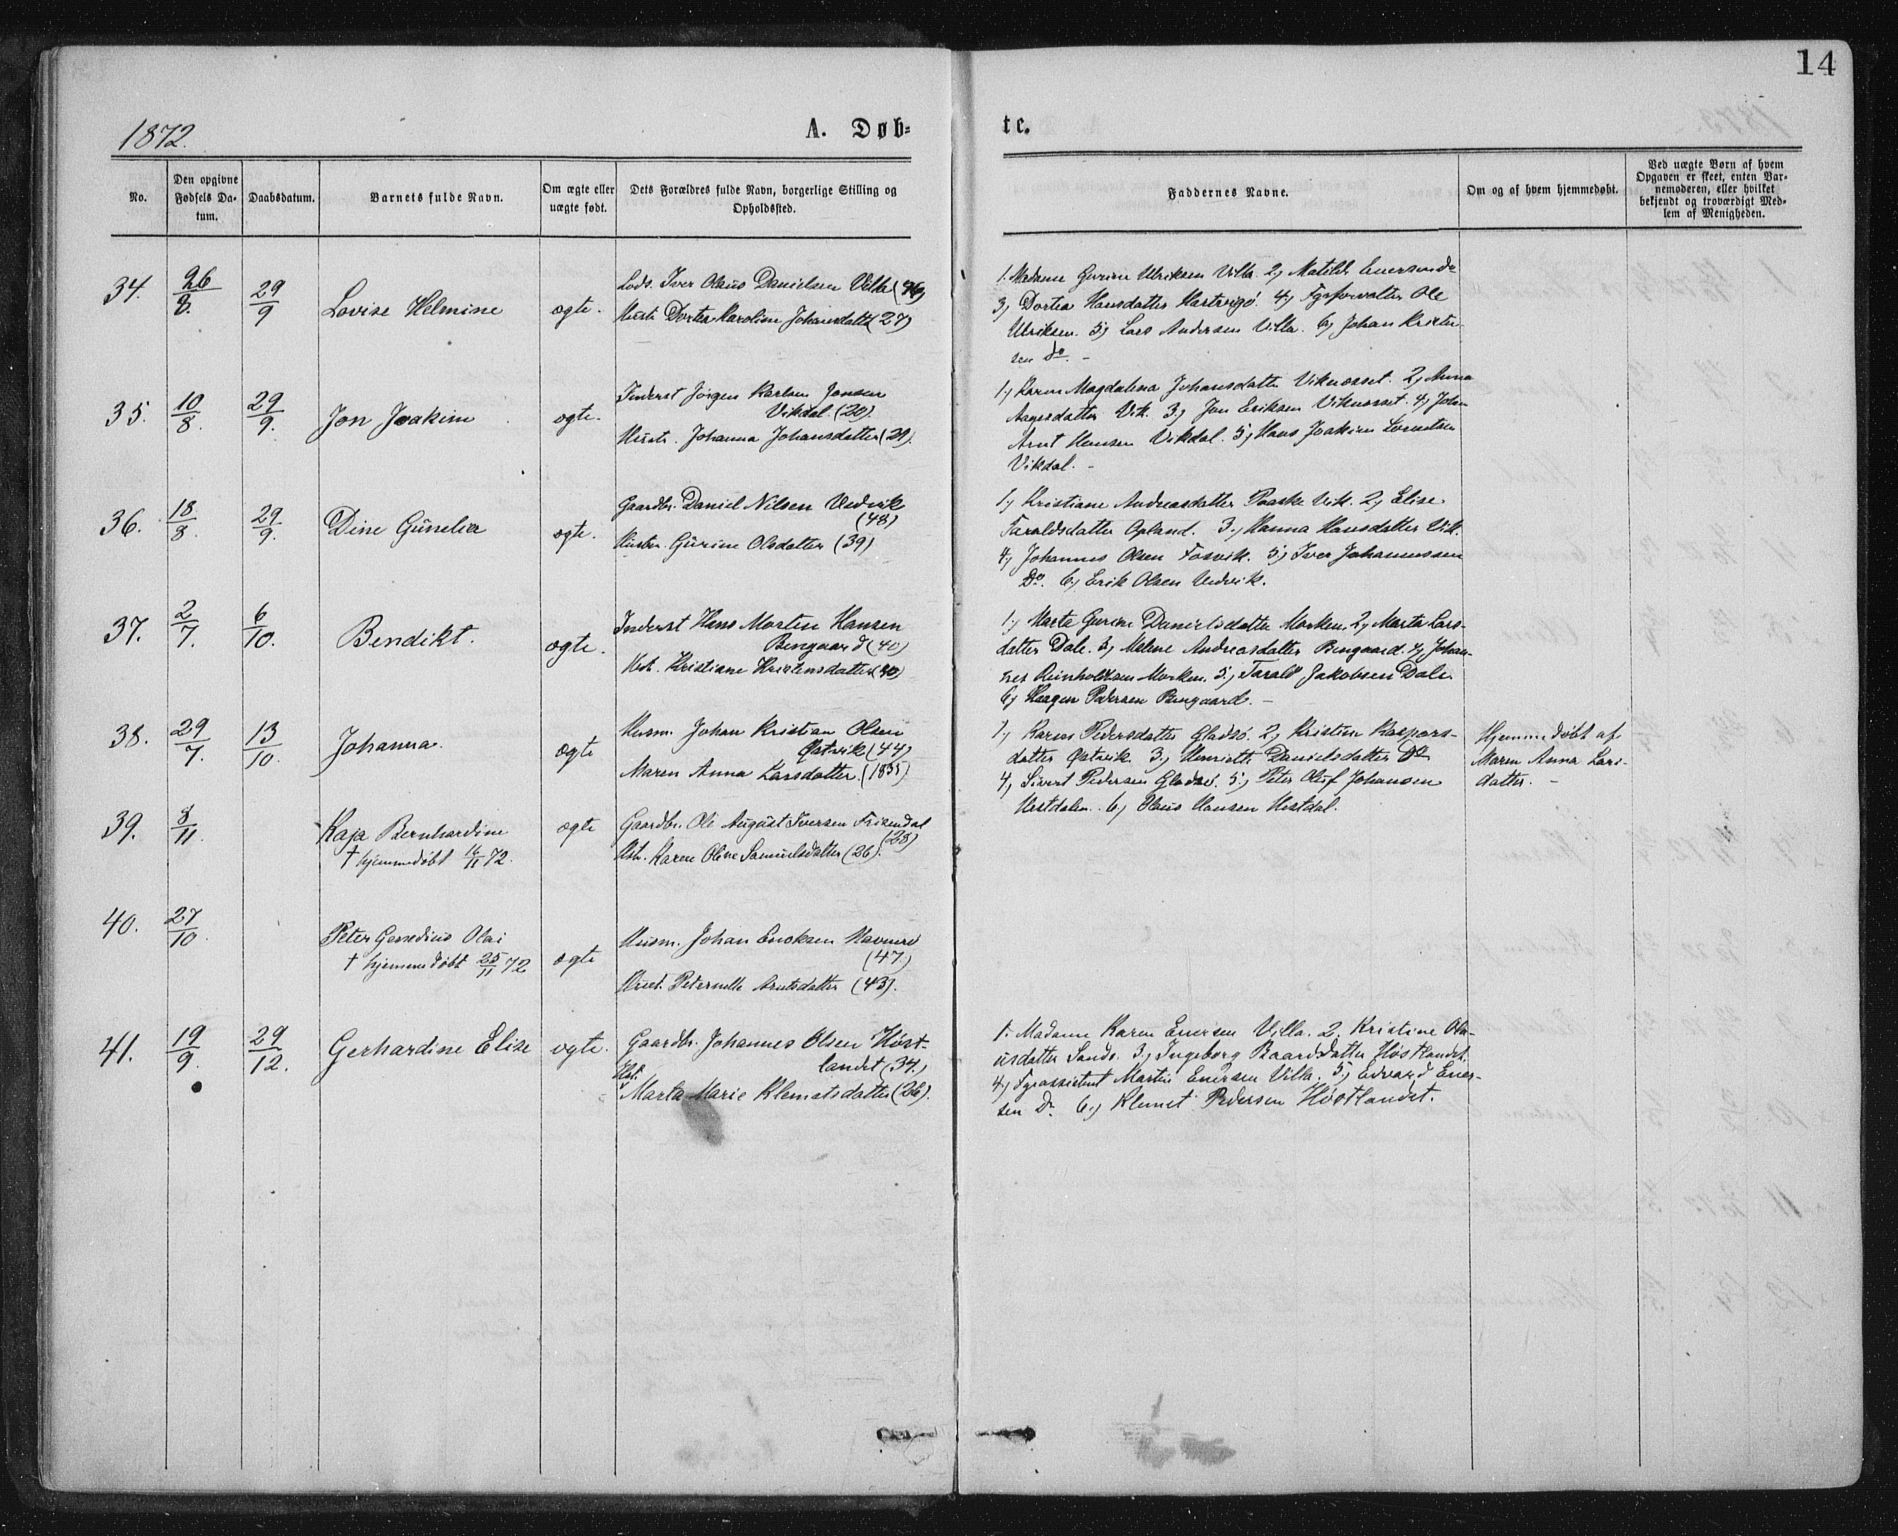 14
1872.
A. Døb-
te.
No.
Den opgivne
Fødsels Da-
tum.
Daabsdatum.
Barnets fulde Navn.
Om ægte eller
uægte født.
Dets Forældres fulde Navn, borgerlige Stilling og
Opholdssted.
Faddernes Navne.
Om og af hvem hjemmedøbt.
Ved uægte Børn af hvem
Opgaven er skeet, enten Bar-
nemoderen, eller hvilket
bekjendt og troværdigt Med-
lem af Menigheden.
34. 26/8. 29/9 Lovise Helmine ægte.
Lods. Iver Olaus Danielsen Villa
Hustr. Dortea Karoline Johansdatt (27)
1. Madame Gurine Ulriksen Villa. 2, Matilde
3, Dortea Hansdatter 4, Fyrforvalter Ole
Ulriksen. 5, Lars Andersen Villa. 6, Johan Kristen-
sen do. -
35. 10/8. 29/9. Jon Joakim ægte.
Inderst Jörgen Karlsen Jonsen
Vikdal. (20).
Hustr. Johanna Johansdatter (29).
1, Karen Magdalena Johansdatter Viknesset. 2, Anna
Aagesdatter Vik. 3, Jon Eriksen Viknesset. 4, John
Arnt Hansen Vikdal. 5, Hans Joakim Lorentsen
Vikdal. -
36. 18/8. 29/9. Dine Gunelia ægte.
Gaardbr. Daniel Nilsen Vedvik
(48)
Hustr. Gurine Olsdatter (39)
1, Kristiane Andreasdatter Vik. 2, Elise
Taraldsdatter Opland. 3, Hanna Hansdatter Vik.
4, Johannes Olsen Fosvik. 5, Iver Johannessen
Do. 6, Erik Olsen Vedvik.
37. 2/7. 6/10. Bendikt. ægte.
Inderst Hans Morten Hansen
Bengaard (40)
Hst. Kristiane Kristensdatter (40)
1, Marta Gurine Danielsdatter Morken. 2, Marta Lars-
datter Dale. 3, Melene Andreasdatter Bengaard. 4, Johan-
nes Reinholdtsen Morken. 5, Farald Jakobsen Dale.
6, Haagen Pedersen Bengaard. -
38. 29/7. 13/10. Johanna. ægte
Husm. Johan Kristian Olsen
Østvik (44)
Maren Anna Larsdatter. (1835)
1, Karen Pedersdatter Gladsø. 2, Kristine Kaspars-
datter Østvik. 3, Henriette Danielsdatter Do
4, Sivert Pedersen Gladsø. 5, Peter Oluf Johansen
Hestdalen. 6, Olaus Hansen Hestdal.
Hjemmedøbt af
Maren Anna Lars-
datter. -
39. 8/11. Kaja Bernhardine ægte
† hjemmedøbt 16/11 72.
Gaardbr. Ole August Iversen Frisendal
(28)
Hst. Karen Oline Samuelsdatter (26).
40. 27/10. Peter Olai
† hjemmedøbt 25/11 72 ægte
Husm. Johan Enoksen
(47.)
Hust. Peternelle Arntsdatter (43).
41. 19/9. 29/12. Gerhardine Elise ægte.
Gaardbr. Johannes Olsen Høst-
landet (34.)
Hst.
Marta Marie Klemetsdatter (26).
1. Madame Karen Enersen Villa. 2. Kristine Ola-
usdatter Sands. 3, Ingeborg Baardsdatter Høstlandet.
4, Fyrassistent Martin Enersen Villa. 5, Edvard Ener-
sen Do. 6, Klemet Pedersen Høstlandet.